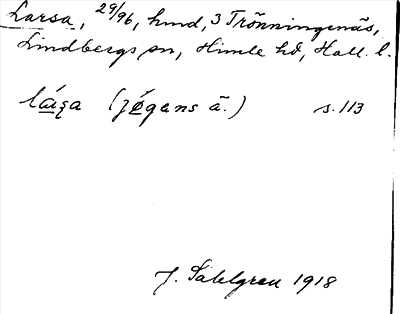 Larsa, 29/96, hmd, 3 Trönningenäs,
Lindbergs sn, Himle hd, Hall. l.
(jógans ã.) s. 113
J. Sahlgren 1918